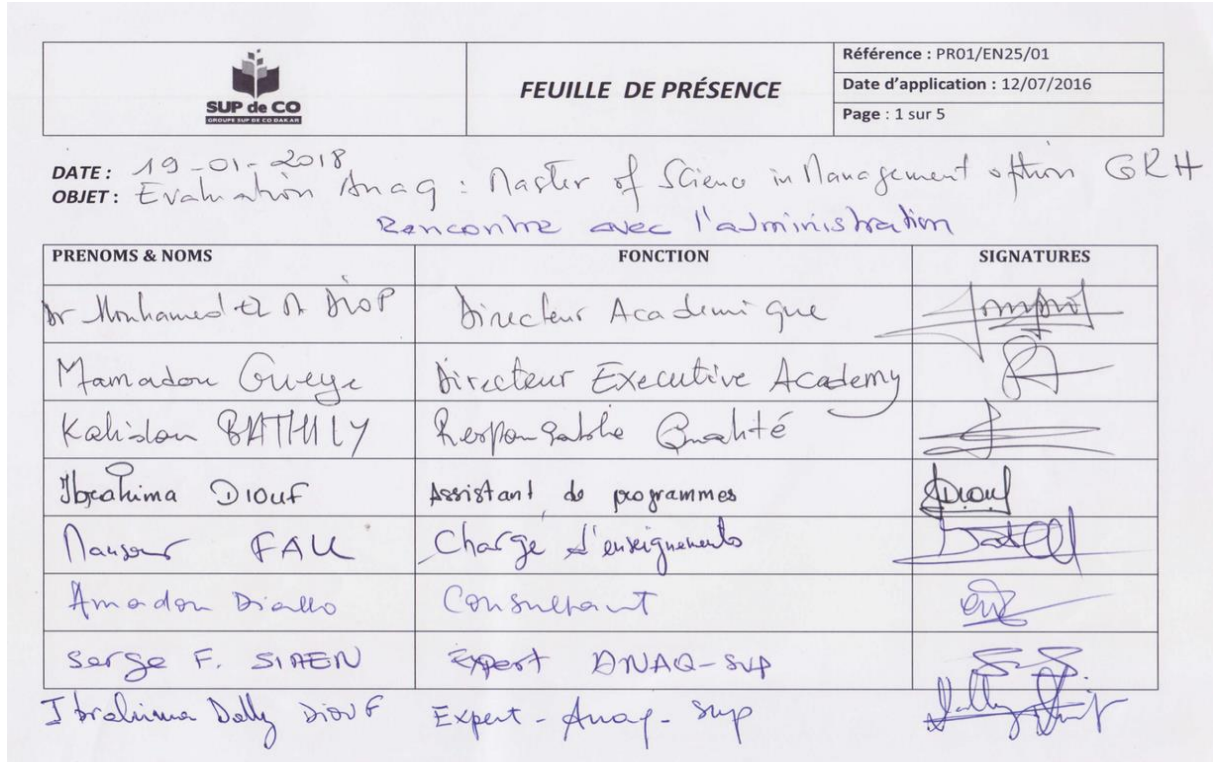 SUP de CO
GROUPE SUP DE CO DAKAR
FEUILLE DE PRÉSENCE
Référence : PR01/EN25/01
Date d'application : 12/07/2016
Page : 1 sur 5
DATE : 19-01-2018
OBJET : Evaluation Anaq : Master of Science in Management option GRH
Rencontre avec l'administration
PRENOMS & NOMS FONCTION SIGNATURES
Dr Mouhamed El DIOP Directeur Académique
Mamadou Gueye Directeur Executive Academy
BATHILY Responsable Qualité
Ibrahima DIOUF Assistant de programmes Diouf
Mansour FALL Chargé d'enseignements
Amadou Diallo Consultant
Serge F. SIMEN Expert ANAQ-SUP
Ibrahima Dally DIOUF Expert - Anaq - Sup